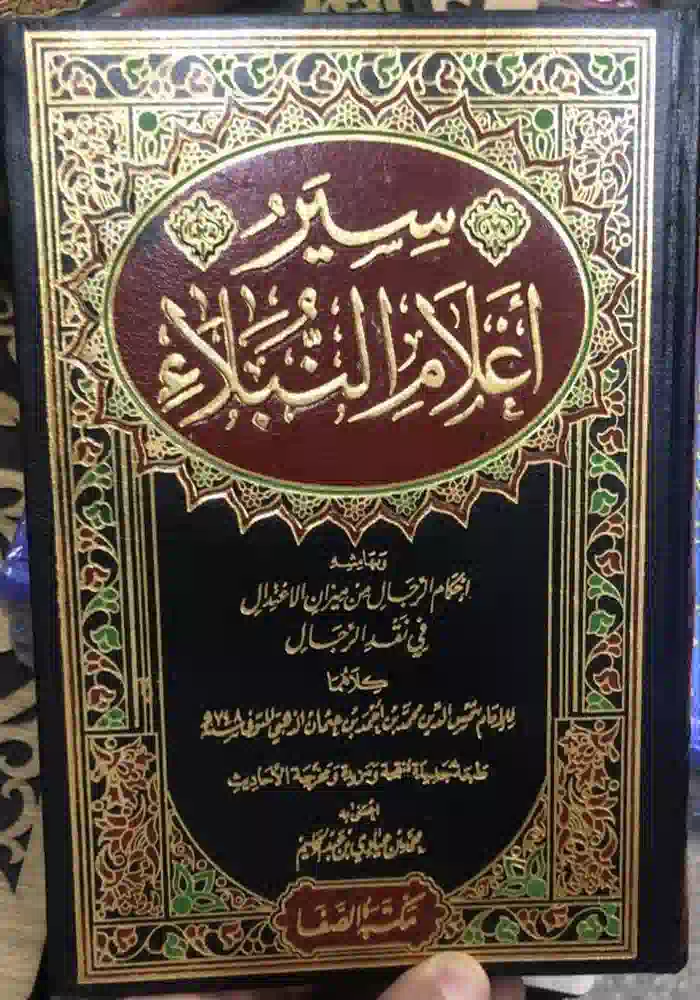 سِيَرُ
أَعْلَامِ النُّبَلَاءِ
وبهامشه
أحكام الرجال من ميزان الاعتدال
في نقد الرجال
كلاهما
للإمام شمس الدين محمد بن أحمد بن عثمان الذهبي المتوفى سنة ٧٤٨ هـ
طبعة جديدة منقحة ومزيدة ومخرجة الأحاديث
اعتنى به
محمد بن عيادي بن عبد الحليم
مكتبة الصفا